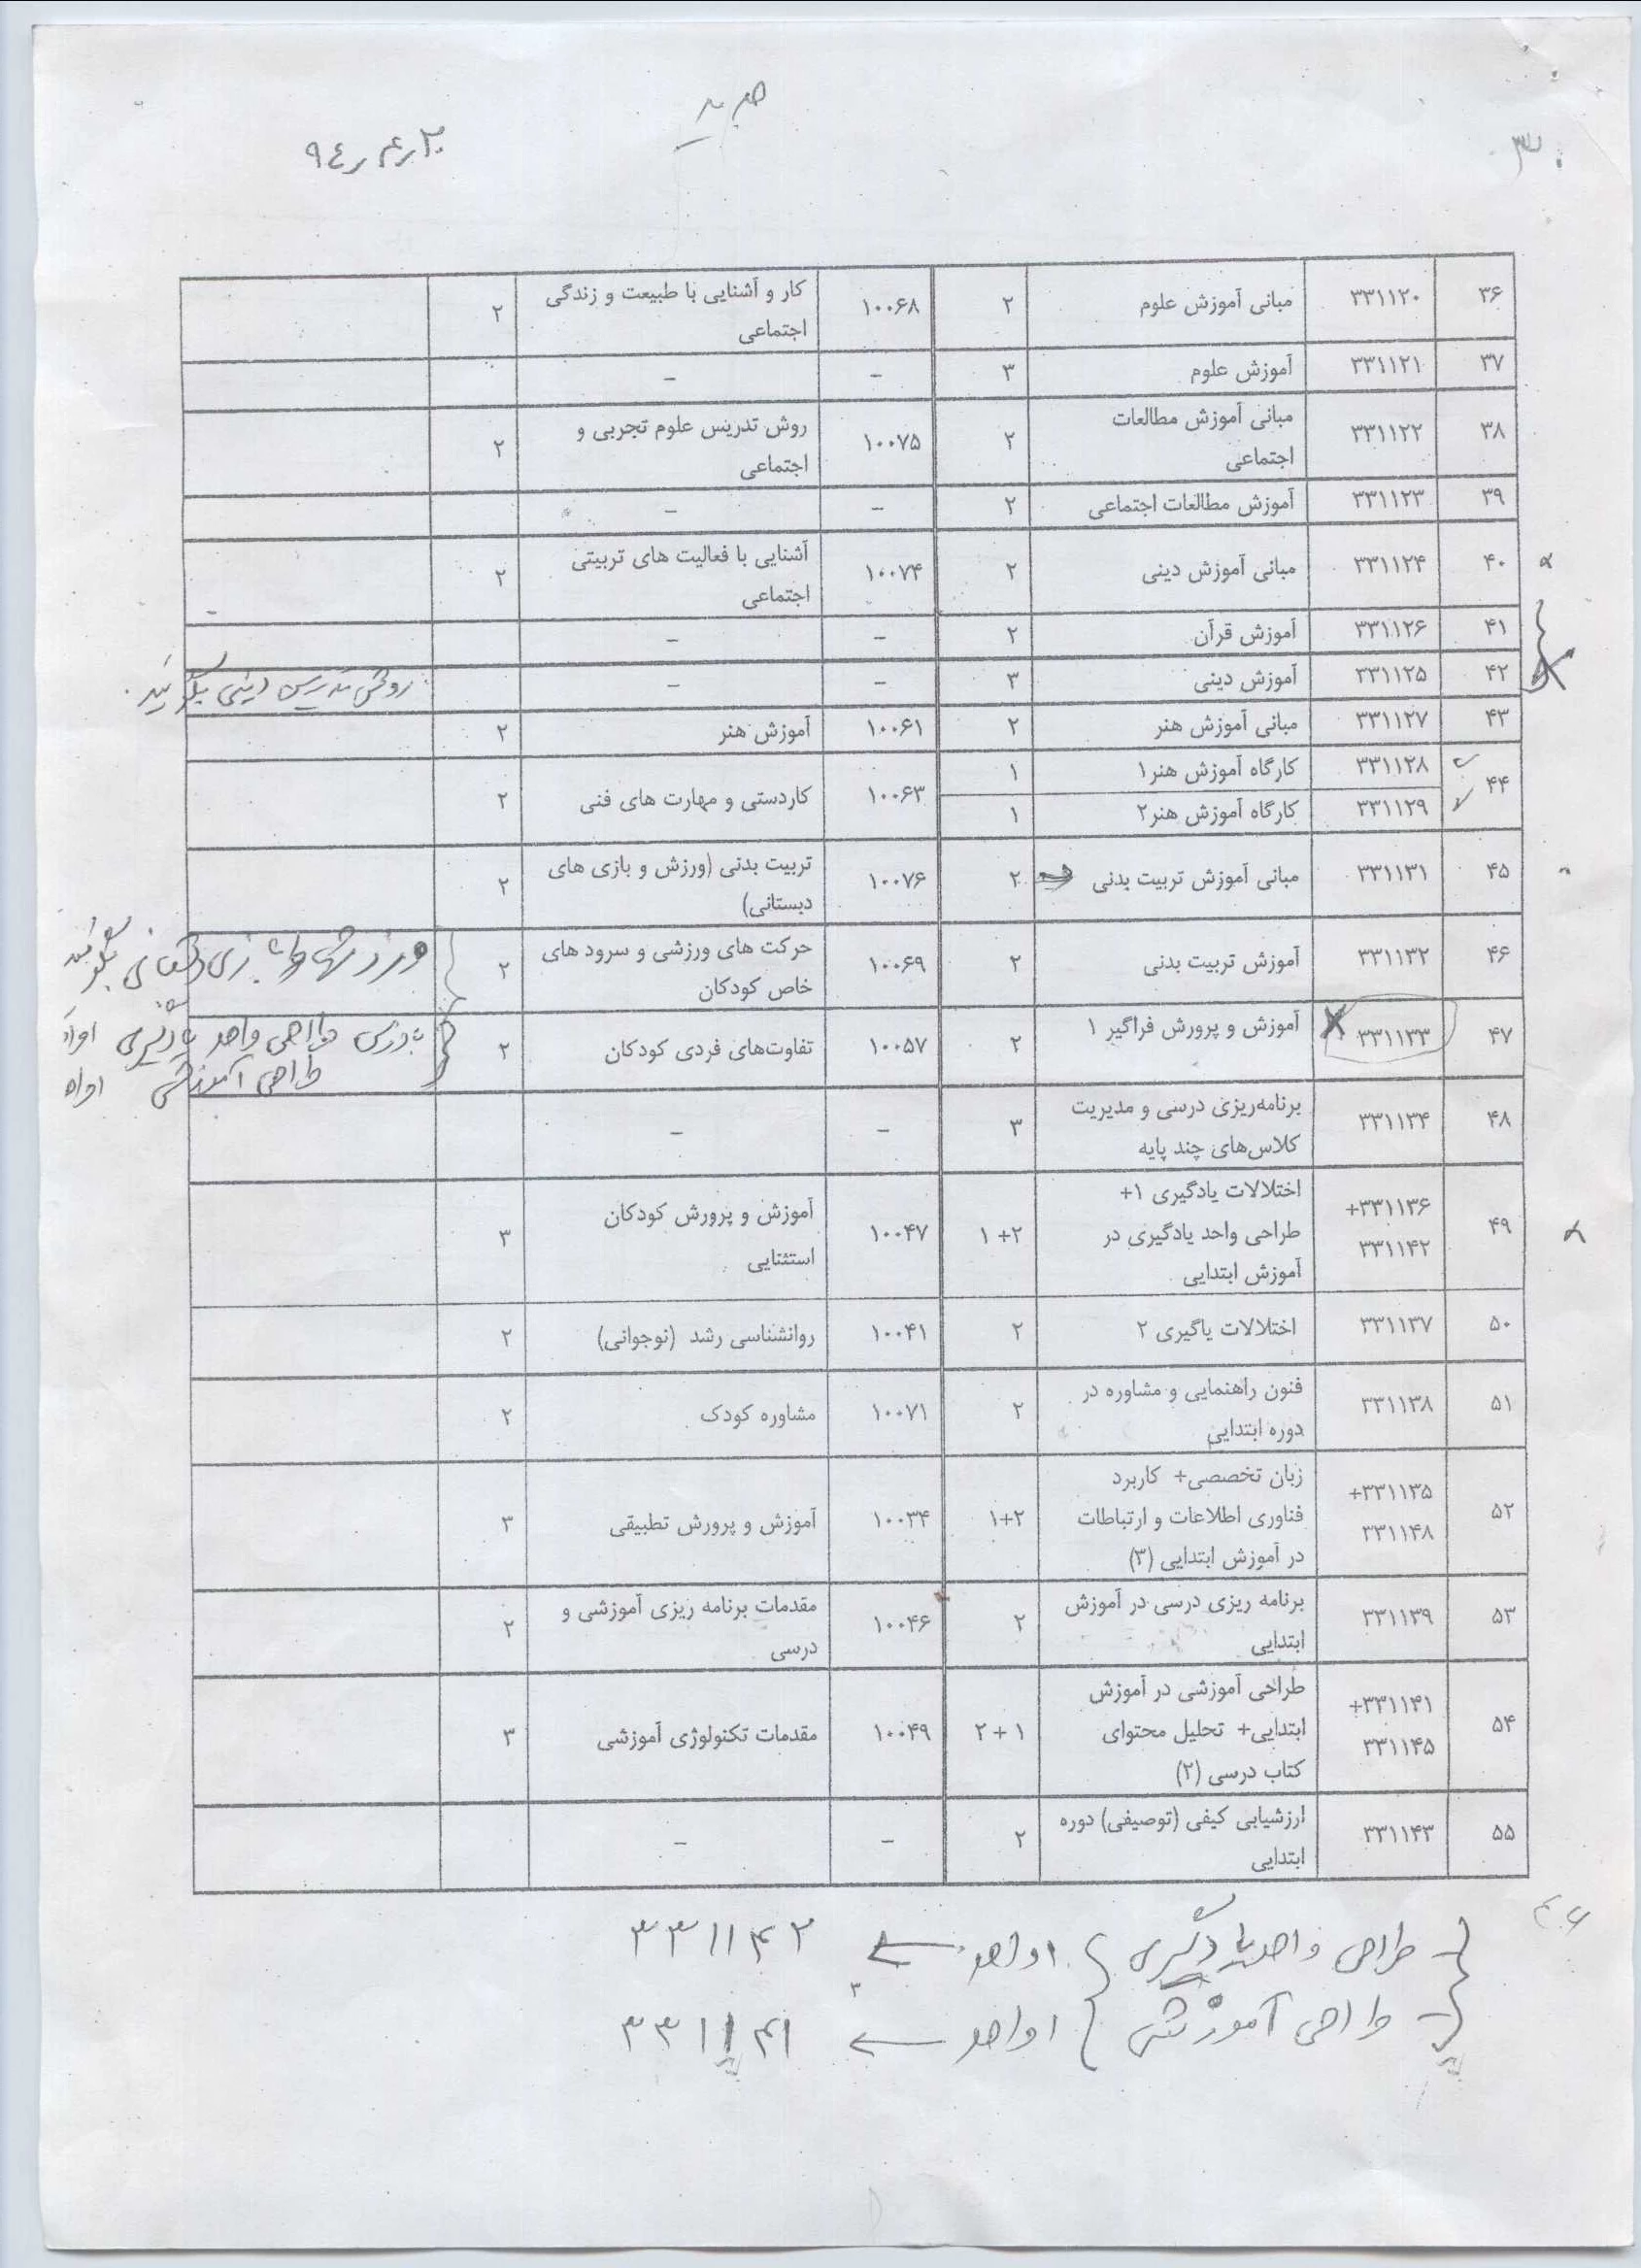 جدید
۳۶ ۳۳۱۱۲۰ مبانی آموزش علوم ۲ ۱۰۰۶۸ کار و آشنایی با طبیعت و زندگی اجتماعی ۲
۳۷ ۳۳۱۱۲۱ آموزش علوم ۳ – –
۳۸ ۳۳۱۱۲۲ مبانی آموزش مطالعات اجتماعی ۲ ۱۰۰۷۵ روش تدریس علوم تجربی و اجتماعی ۲
۳۹ ۳۳۱۱۲۳ آموزش مطالعات اجتماعی ۲ – –
۴۰ ۳۳۱۱۲۴ مبانی آموزش دینی ۲ ۱۰۰۷۴ آشنایی با فعالیت های تربیتی اجتماعی ۲
۴۱ ۳۳۱۱۲۶ آموزش قرآن ۲ – –
۴۲ ۳۳۱۱۲۵ آموزش دینی ۳ – – روش تدریس دینی
۴۳ ۳۳۱۱۲۷ مبانی آموزش هنر ۲ ۱۰۰۶۱ آموزش هنر ۲
۴۴ ۳۳۱۱۲۸ کارگاه آموزش هنر۱ ۱ ۱۰۰۶۳ کاردستی و مهارت های فنی ۲
۳۳۱۱۲۹ کارگاه آموزش هنر۲ ۱
۴۵ ۳۳۱۱۳۱ مبانی آموزش تربیت بدنی ۲ ۱۰۰۷۶ تربیت بدنی (ورزش و بازی های دبستانی) ۲
۴۶ ۳۳۱۱۳۲ آموزش تربیت بدنی ۲ ۱۰۰۶۹ حرکت های ورزشی و سرود های خاص کودکان ۲
۴۷ ۳۳۱۱۳۳ آموزش و پرورش فراگیر ۱ ۲ ۱۰۰۵۷ تفاوت‌های فردی کودکان ۲
طراحی واحد یادگیری
طراحی آموزشی
۴۸ ۳۳۱۱۳۴ برنامه‌ریزی درسی و مدیریت کلاس‌های چند پایه ۳ – –
۴۹ ۳۳۱۱۳۶+ ۳۳۱۱۴۲ اختلالات یادگیری ۱+ طراحی واحد یادگیری در آموزش ابتدایی ۲+ ۱ ۱۰۰۴۷ آموزش و پرورش کودکان استثنایی ۳
۵۰ ۳۳۱۱۳۷ اختلالات یاگیری ۲ ۲ ۱۰۰۴۱ روانشناسی رشد (نوجوانی) ۲
۵۱ ۳۳۱۱۳۸ فنون راهنمایی و مشاوره در دوره ابتدایی ۲ ۱۰۰۷۱ مشاوره کودک ۲
۵۲ ۳۳۱۱۳۵+ ۳۳۱۱۴۸ زبان تخصصی+ کاربرد فناوری اطلاعات و ارتباطات در آموزش ابتدایی (۳) ۲+۱ ۱۰۰۳۴ آموزش و پرورش تطبیقی ۳
۵۳ ۳۳۱۱۳۹ برنامه ریزی درسی در آموزش ابتدایی ۲ ۱۰۰۴۶ مقدمات برنامه ریزی آموزشی و درسی ۲
۵۴ ۳۳۱۱۴۱+ ۳۳۱۱۴۵ طراحی آموزشی در آموزش ابتدایی+ تحلیل محتوای کتاب درسی (۲) ۱ + ۲ ۱۰۰۴۹ مقدمات تکنولوژی آموزشی ۳
۵۵ ۳۳۱۱۴۳ ارزشیابی کیفی (توصیفی) دوره ابتدایی ۲ – –
طراحی واحد یادگیری ۱ واحد ← ۳۳۱۱۴۲
طراحی آموزشی ۱ واحد ← ۳۳۱۱۴۱